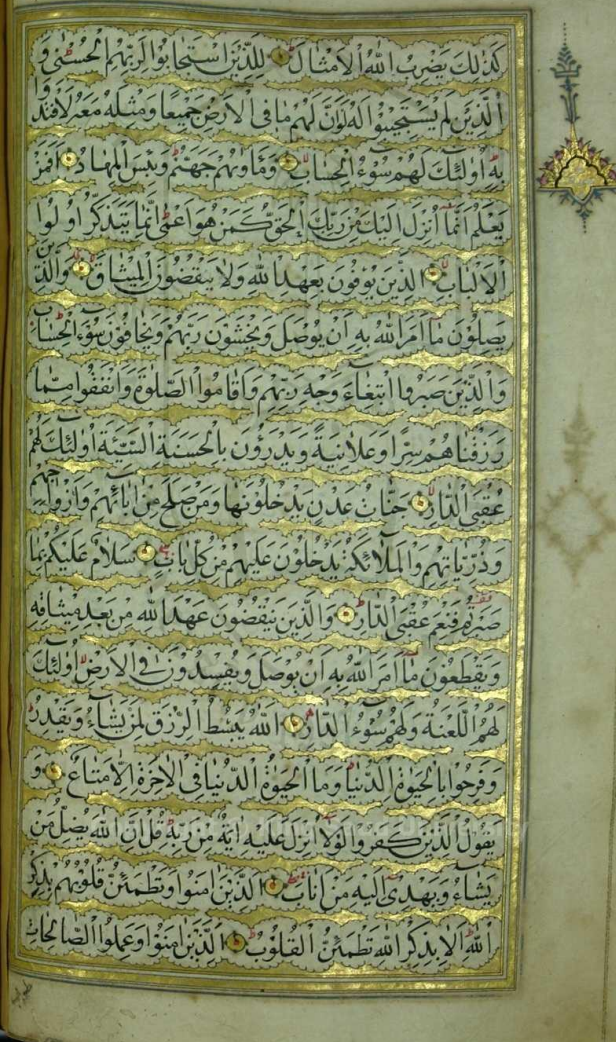 كَذٰلِكَ يَضْرِبُ اللهُ الْاَمْثَالَ لِلَّذِينَ اسْتَجَابُوا لِرَبِّهِمُ الْحُسْنٰى وَ
الَّذِينَ لَمْ يَسْتَجِيبُوا لَهُ لَوْ اَنَّ لَهُمْ مَا فِى الْاَرْضِ جَمِيعًا وَمِثْلَهُ مَعَهُ لَافْتَدَوْا
بِهِ اُولٰئِكَ لَهُمْ سُوءُ الْحِسَابِ وَمَاْوٰيهُمْ جَهَنَّمُ وَبِئْسَ الْمِهَادُ اَفَمَنْ
يَعْلَمُ اَنَّمَا اُنْزِلَ اِلَيْكَ مِنْ رَبِّكَ الْحَقُّ كَمَنْ هُوَ اَعْمٰى اِنَّمَا يَتَذَكَّرُ اُولُوا
الْاَلْبَابِ الَّذِينَ يُوفُونَ بِعَهْدِ اللهِ وَلَا يَنْقُضُونَ الْمِيثَاقَ وَالَّذِينَ
يَصِلُونَ مَا اَمَرَ اللهُ بِهِ اَنْ يُوصَلَ وَيَخْشَوْنَ رَبَّهُمْ وَيَخَافُونَ سُوءَ الْحِسَابِ
وَالَّذِينَ صَبَرُوا ابْتِغَاءَ وَجْهِ رَبِّهِمْ وَاَقَامُوا الصَّلٰوةَ وَاَنْفَقُوا مِمَّا
رَزَقْنَاهُمْ سِرًّا وَعَلَانِيَةً وَيَدْرَؤُنَ بِالْحَسَنَةِ السَّيِّئَةَ اُولٰئِكَ لَهُمْ
عُقْبَى الدَّارِ جَنَّاتُ عَدْنٍ يَدْخُلُونَهَا وَمَنْ صَلَحَ مِنْ اٰبَائِهِمْ وَاَزْوَاجِهِمْ
وَذُرِّيَّاتِهِمْ وَالْمَلٰئِكَةُ يَدْخُلُونَ عَلَيْهِمْ مِنْ كُلِّ بَابٍ سَلَامٌ عَلَيْكُمْ بِمَا
صَبَرْتُمْ فَنِعْمَ عُقْبَى الدَّارِ وَالَّذِينَ يَنْقُضُونَ عَهْدَ اللهِ مِنْ بَعْدِ مِيثَاقِهِ
وَيَقْطَعُونَ مَا اَمَرَ اللهُ بِهِ اَنْ يُوصَلَ وَيُفْسِدُونَ فِى الْاَرْضِ اُولٰئِكَ
لَهُمُ اللَّعْنَةُ وَلَهُمْ سُوءُ الدَّارِ اَللهُ يَبْسُطُ الرِّزْقَ لِمَنْ يَشَاءُ وَيَقْدِرُ
وَفَرِحُوا بِالْحَيٰوةِ الدُّنْيَا وَمَا الْحَيٰوةُ الدُّنْيَا فِى الْاٰخِرَةِ اِلَّا مَتَاعٌ وَ
يَقُولُ الَّذِينَ كَفَرُوا لَوْلَا اُنْزِلَ عَلَيْهِ اٰيَةٌ مِنْ رَبِّهِ قُلْ اِنَّ اللهَ يُضِلُّ مَنْ
يَشَاءُ وَيَهْدِى اِلَيْهِ مَنْ اَنَابَ اَلَّذِينَ اٰمَنُوا وَتَطْمَئِنُّ قُلُوبُهُمْ بِذِكْرِ
اللهِ اَلَا بِذِكْرِ اللهِ تَطْمَئِنُّ الْقُلُوبُ اَلَّذِينَ اٰمَنُوا وَعَمِلُوا الصَّالِحَاتِ